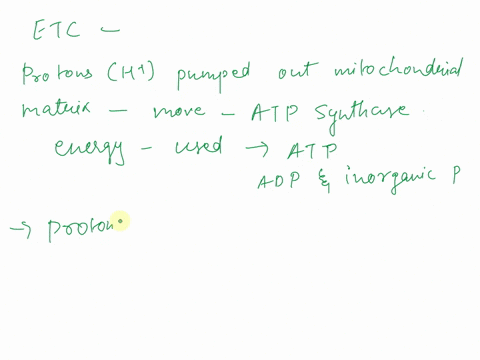 ETC —
Protons (H+) pumped out mitochondrial
matrix — move — ATP Synthase.
energy — used → ATP
ADP & inorganic P
→ Proton